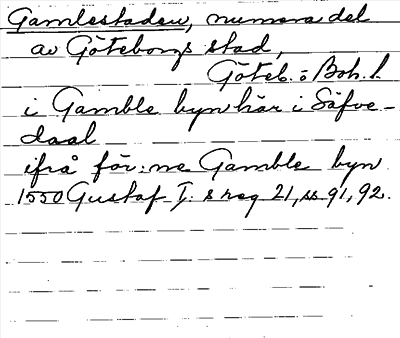 Gamlestaden, numera del
av Göteborgs stad,
Göteb. o Boh. l.
i Gamble byn här i Säfve-
daal
ifrå för:ne Gamble byn
1550 Gustaf I:s reg 21, ss 91, 92.